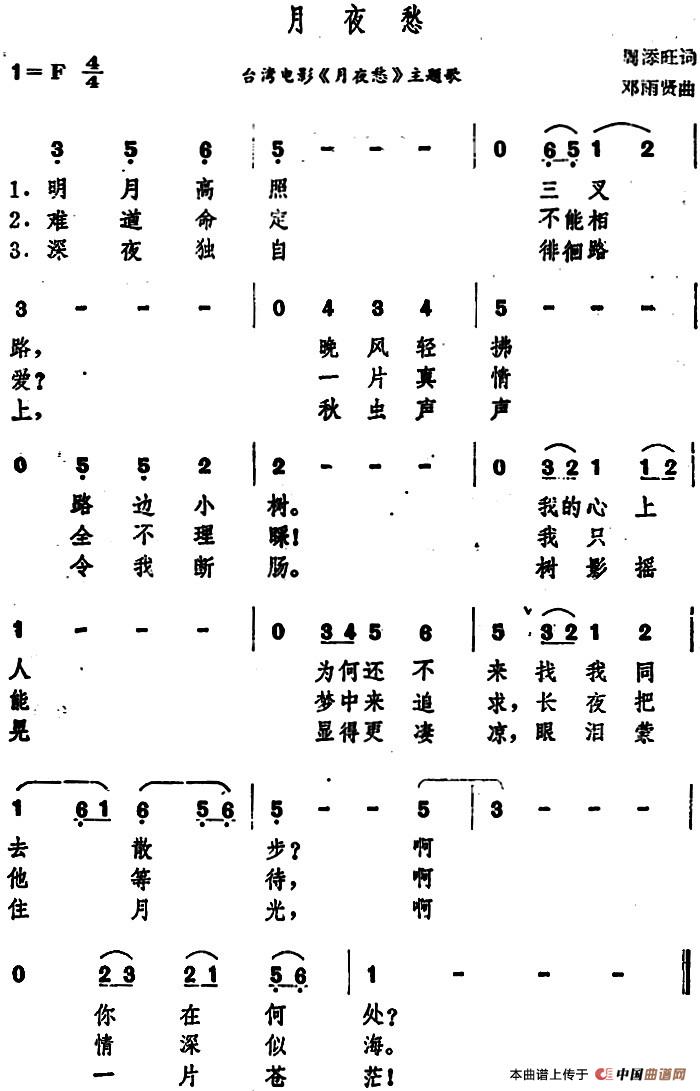 月夜愁
1=F 4/4
台湾电影《月夜愁》主题歌
周添旺词
邓雨贤曲
3 5 6 | 5 - - - | 0 6 5 1 2 |
1. 明月高照 三叉
2. 难道命定 不能相
3. 深夜独自 徘徊路
3 - - - | 0 4 3 4 | 5 - - - |
路， 晚风轻拂
爱？ 一片真情
上， 秋虫声声
0 5 5 2 | 2 - - - | 0 3 2 1 1 2 |
路边小树。 我的心上
全不理睬！ 我只
令我断肠。 树影摇
1 - - - | 0 3 4 5 6 | 5 3 2 1 2 |
人 为何还不来找我同
能 梦中来追求，长夜把
晃 显得更凄凉，眼泪蒙
1 6 1 6 5 6 | 5 - - 5 | 3 - - - |
去散步？ 啊
他等待， 啊
住月光， 啊
0 2 3 2 1 5 6 | 1 - - - ‖
你在何处？
情深似海。
一片苍茫！
本曲谱上传于 中国曲谱网